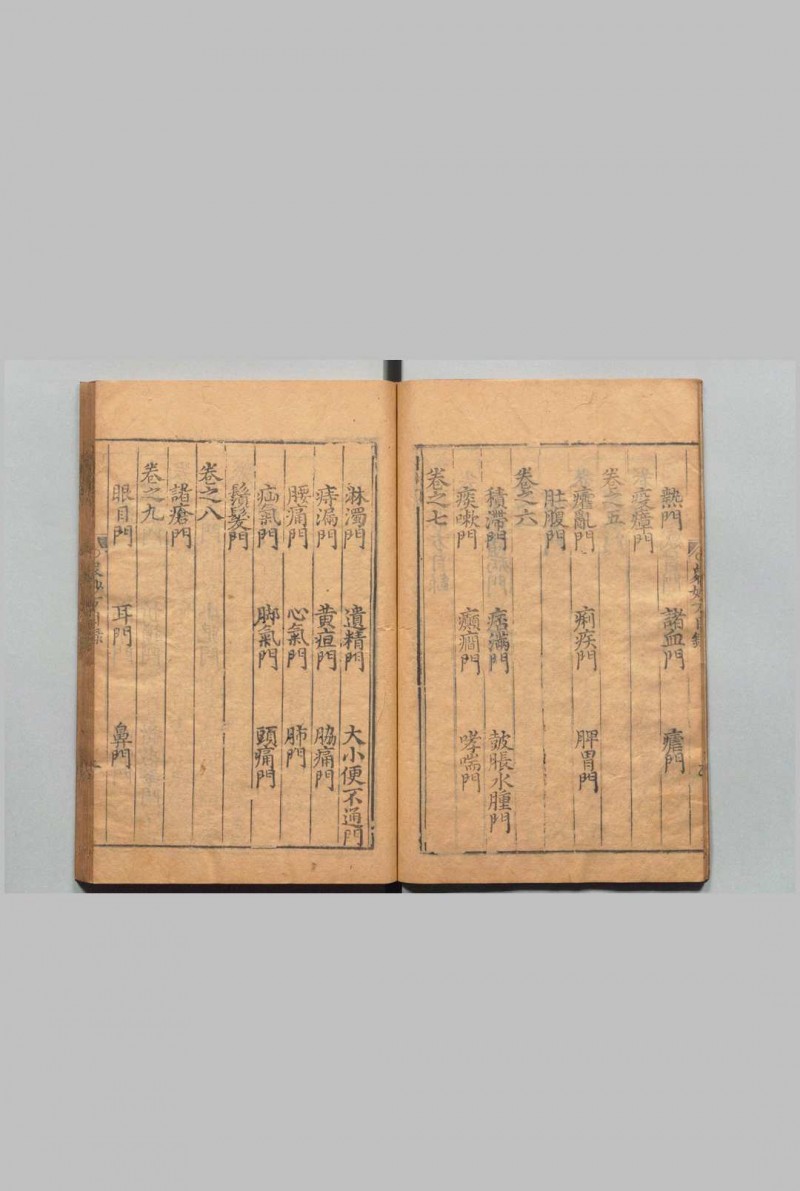 熱門 諸血門 瘧門
疫瘴門
卷之五
霍亂門 痢疾門 脾胃門
肚腹門
卷之六
積滯門 痞滿門 皷脹水腫門
痰嗽門 癲癇門 哮喘門
卷之七
淋濁門 遺精門 大小便不通門
痔漏門 黄疸門 脇痛門
腰痛門 心氣門 肺門
疝氣門 脚氣門 頭痛門
鬚髮門
卷之八
諸瘡門
卷之九
眼目門 耳門 鼻門